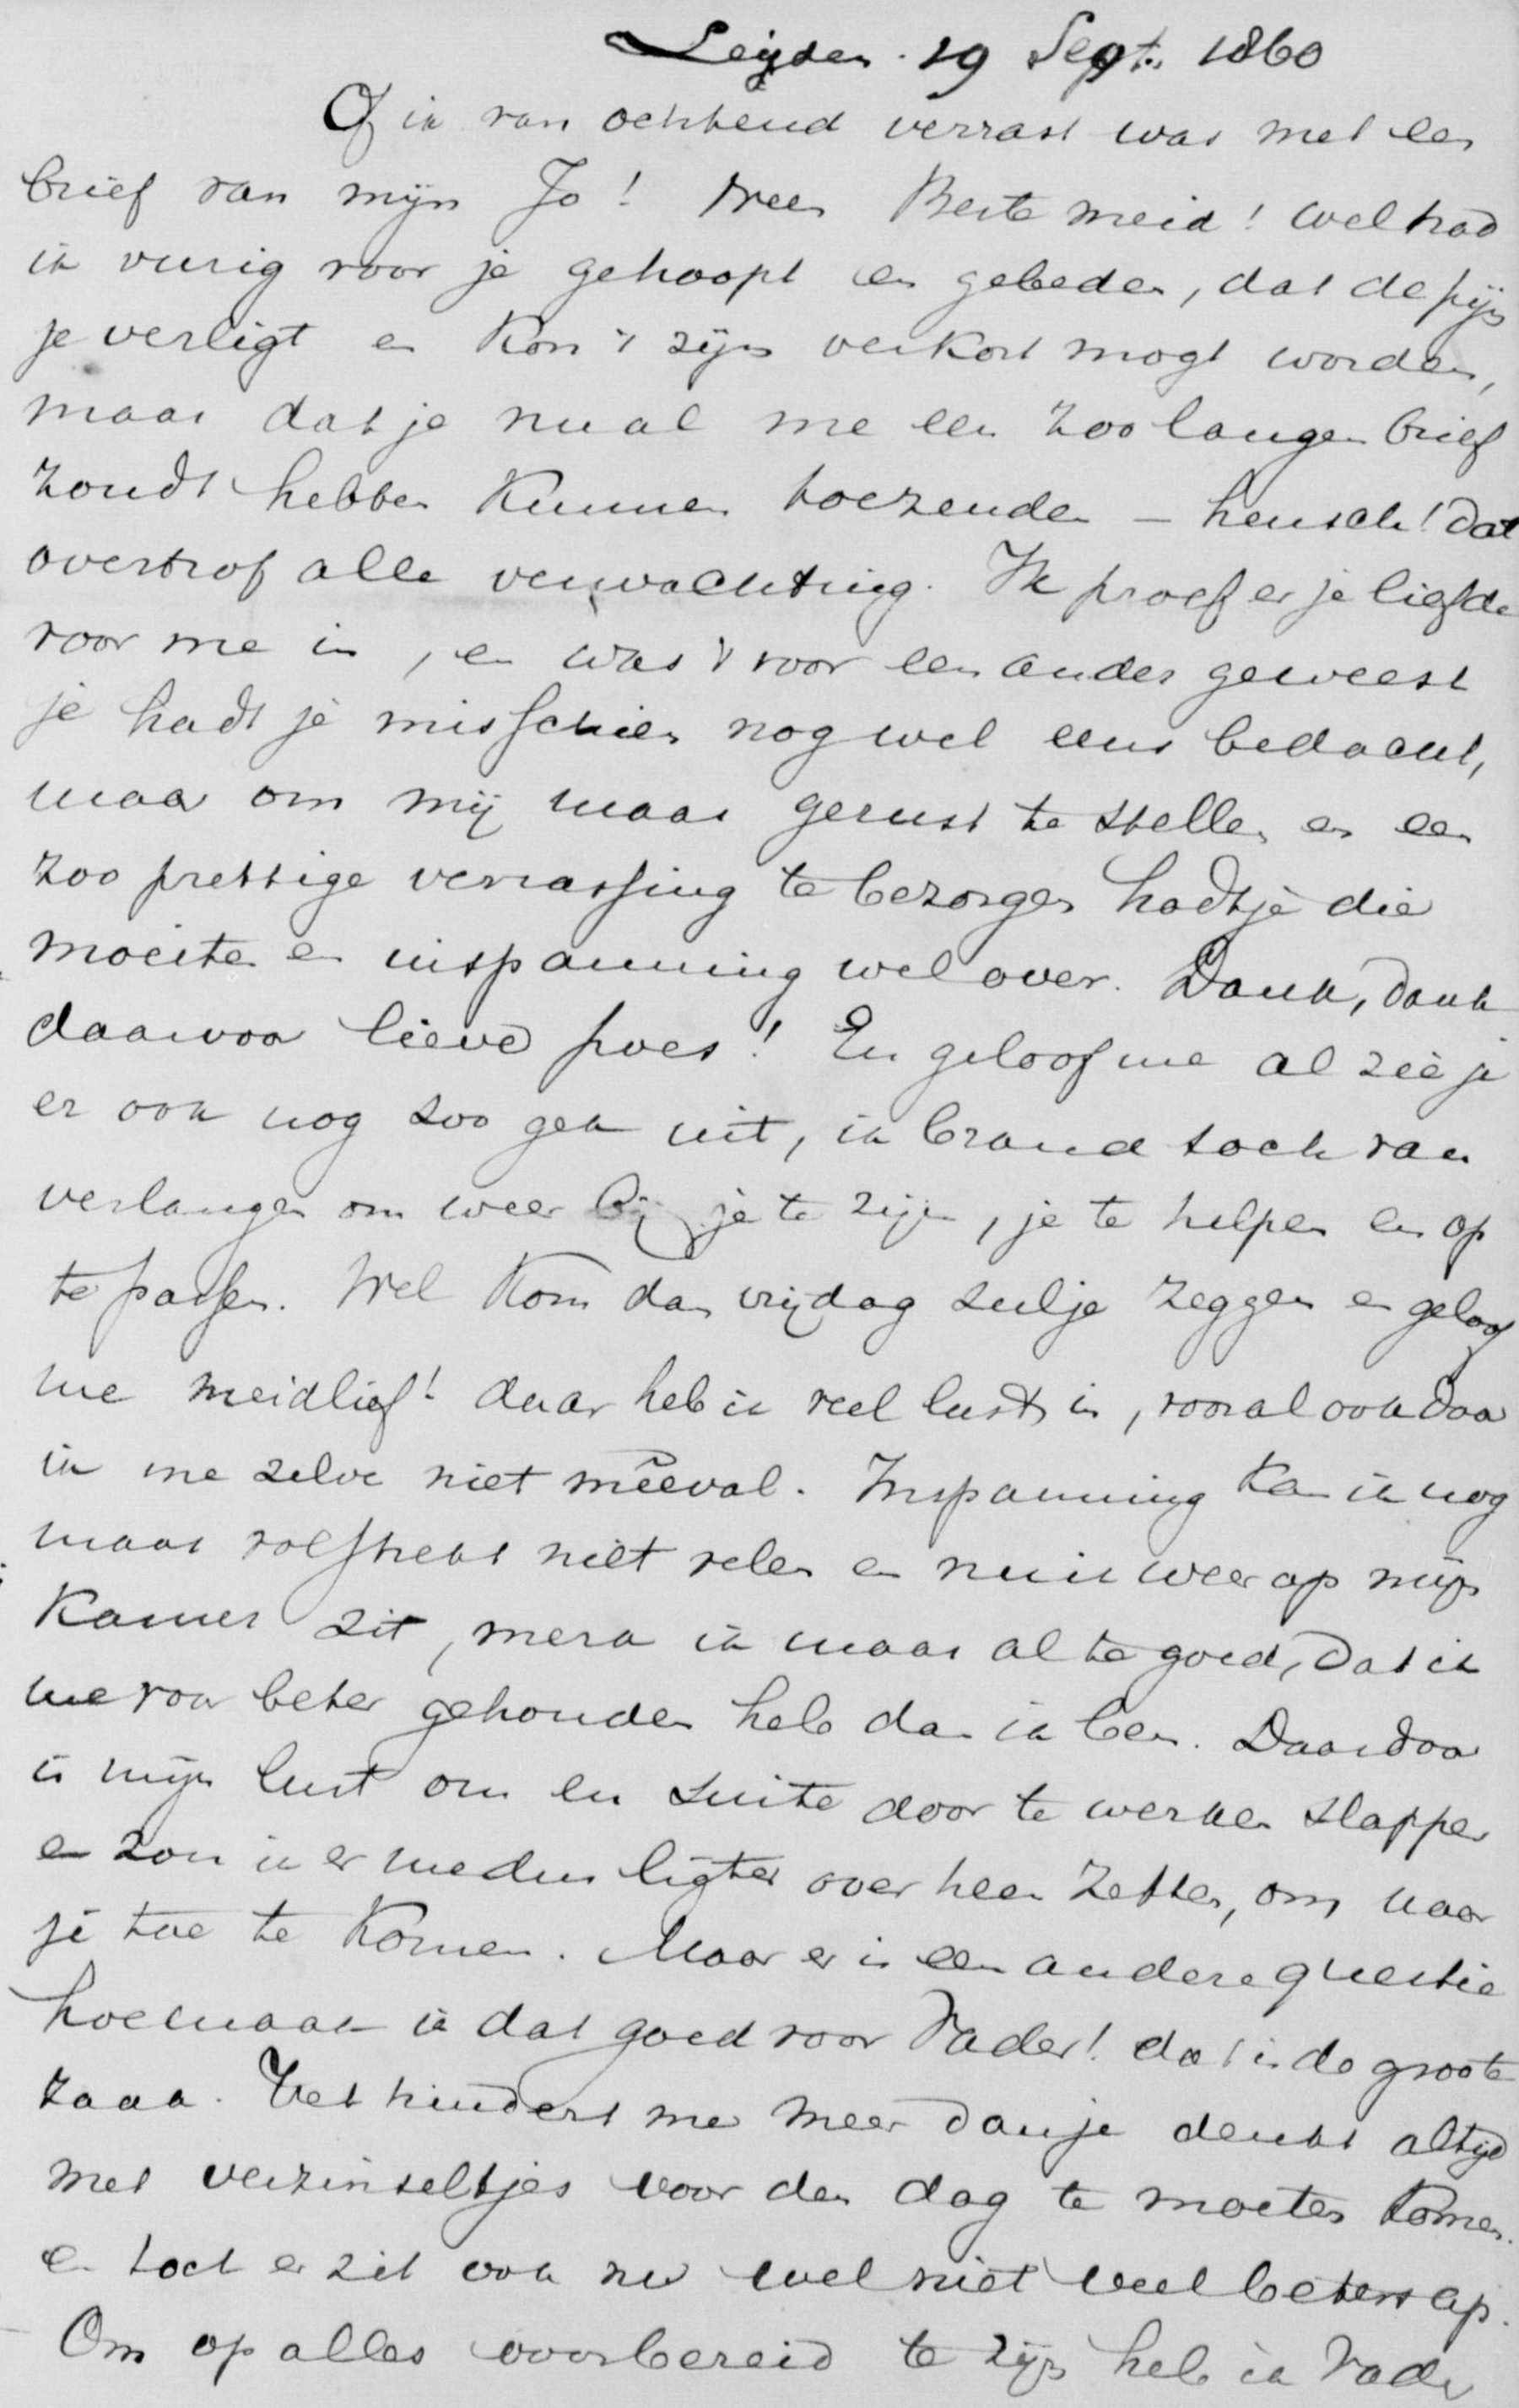 Leijden. 19 Sept. 1860
Of ik van ochtend verrast was met een
brief van mijn Jo! Nee, Beste meid! wel had
ik vurig voor je gehoopt en gebeden, dat de pijn
je verligt en kon 't zijn verkort mogt worden,
maar dat je nu al me een zoo langen brief
zoudt hebben kunnen toezenden – heusch! dat
overtrof alle verwachting. Ik proef er je liefde
voor me in, en was 't voor een ander geweest
je hadt je misschien nog wel eens bedacht,
maar om mij maar gerust te stellen en een
zoo prettige verrassing te bezorgen hadt je die
moeite en inspanning wel over. Dank, dank
daarvoor lieve poes! En geloof me al zie je
er ook nog zoo gek uit, ik brand toch van
verlangen om weer bij je te zijn, je te helpen en op
te passen. Wel kom dan vrijdag zul je zeggen en geloof
me meidlief! daar heb ik veel lust in, vooral ook daar
ik me zelve niet meêval. Inspanning kan ik nog
maar volstrekt niet velen en nu ik weer op mijn
kamer zit, merk ik maar al te goed, dat ik
me voor beter gehouden heb dan ik ben. Daardoor
is mijn lust om en suite door te werken slapper
en zou ik er me dus ligter over heen zetten, om naar
je toe te komen. Maar er is een andere questie
hoe maak ik dat goed voor Vader! dat is de groote
zaak. Het hindert me meer dan je denkt altijd
met verzinseltjes voor den dag te moeten komen.
en toch er zit ook nu wel niet veel beters op.
Om op alles voorbereid te zijn heb ik Vader